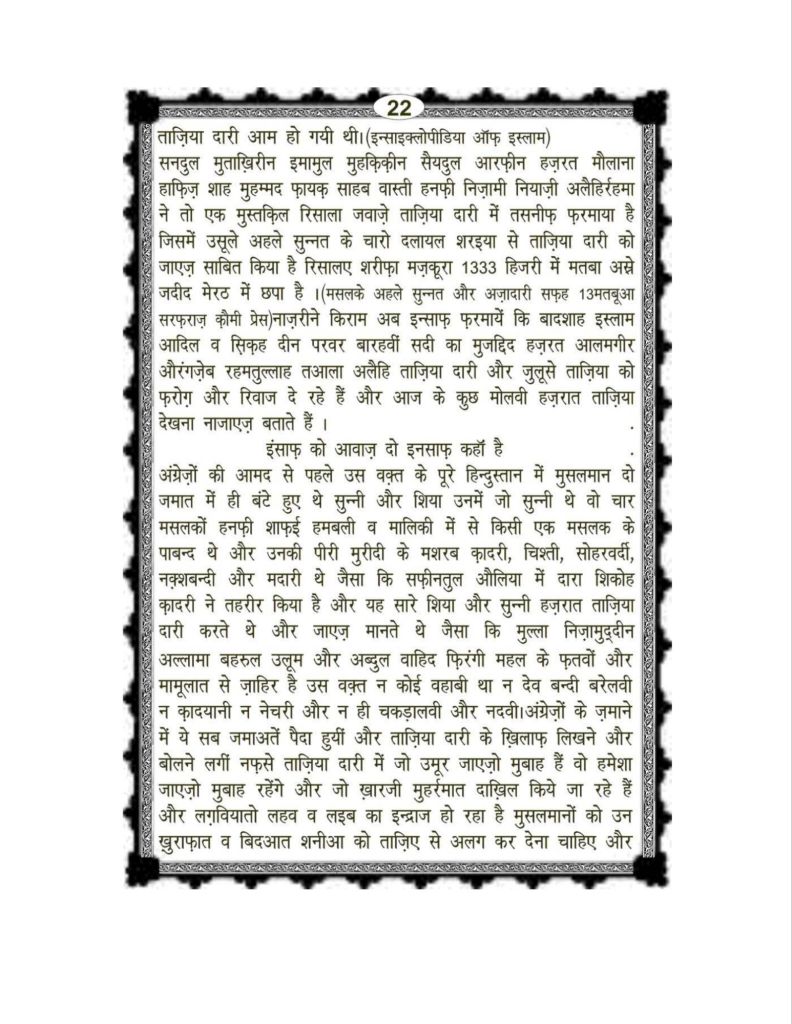 22
ताज़िया दारी आम हो गयी थी।(इन्साइक्लोपीडिया ऑफ़ इस्लाम)
सनदुल मुताख़िरीन इमामुल मुहक़िक़ीन सैयदुल आरफ़ीन हज़रत मौलाना
हाफ़िज़ शाह मुहम्मद फ़ायक़ साहब वास्ती हनफ़ी निज़ामी नियाज़ी अलैहिर्रहमा
ने तो एक मुस्तक़िल रिसाला जवाज़े ताज़िया दारी में तसनीफ़ फ़रमाया है
जिसमें उसूले अहले सुन्नत के चारो दलायल शरइया से ताज़िया दारी को
जाएज़ साबित किया है रिसालए शरीफ़ा मज़कूरा 1333 हिजरी में मतबा अस्रे
जदीद मेरठ में छपा है ।(मसलके अहले सुन्नत और अज़ादारी सफ़ह 13मतबूआ
सरफ़राज़ क़ौमी प्रेस)नाज़रीने किराम अब इन्साफ़ फ़रमायें कि बादशाह इस्लाम
आदिल व स़िक़ह दीन परवर बारहवीं सदी का मुजद्दिद हज़रत आलमगीर
औरंगज़ेब रहमतुल्लाह तआला अलैहि ताज़िया दारी और जुलूसे ताज़िया को
फ़रोग़ और रिवाज दे रहे हैं और आज के कुछ मोलवी हज़रात ताज़िया
देखना नाजाएज़ बताते हैं ।
इंसाफ़ को आवाज़ दो इनसाफ़ कहॉं है
अंग्रेज़ों की आमद से पहले उस वक़्त के पूरे हिन्दुस्तान में मुसलमान दो
जमात में ही बंटे हुए थे सुन्नी और शिया उनमें जो सुन्नी थे वो चार
मसलकों हनफ़ी शाफ़ई हमबली व मालिकी में से किसी एक मसलक के
पाबन्द थे और उनकी पीरी मुरीदी के मशरब क़ादरी, चिश्ती, सोहरवर्दी,
नक़्शबन्दी और मदारी थे जैसा कि सफ़ीनतुल औलिया में दारा शिकोह
क़ादरी ने तहरीर किया है और यह सारे शिया और सुन्नी हज़रात ताज़िया
दारी करते थे और जाएज़ मानते थे जैसा कि मुल्ला निज़ामुद्दीन
अल्लामा बहरुल उलूम और अब्दुल वाहिद फ़िरंगी महल के फ़तवों और
मामूलात से ज़ाहिर है उस वक़्त न कोई वहाबी था न देव बन्दी बरेलवी
न क़ादयानी न नेचरी और न ही चकड़ालवी और नदवी।अंग्रेज़ों के ज़माने
में ये सब जमाअतें पैदा हुयीं और ताज़िया दारी के ख़िलाफ़ लिखने और
बोलने लगीं नफ़से ताज़िया दारी में जो उमूर जाएज़ो मुबाह हैं वो हमेशा
जाएज़ो मुबाह रहेंगे और जो ख़ारजी मुहर्रमात दाख़िल किये जा रहे हैं
और लग़वियातो लहव व लइब का इन्द्राज हो रहा है मुसलमानों को उन
ख़ुराफ़ात व बिदआत शनीआ को ताज़िए से अलग कर देना चाहिए और